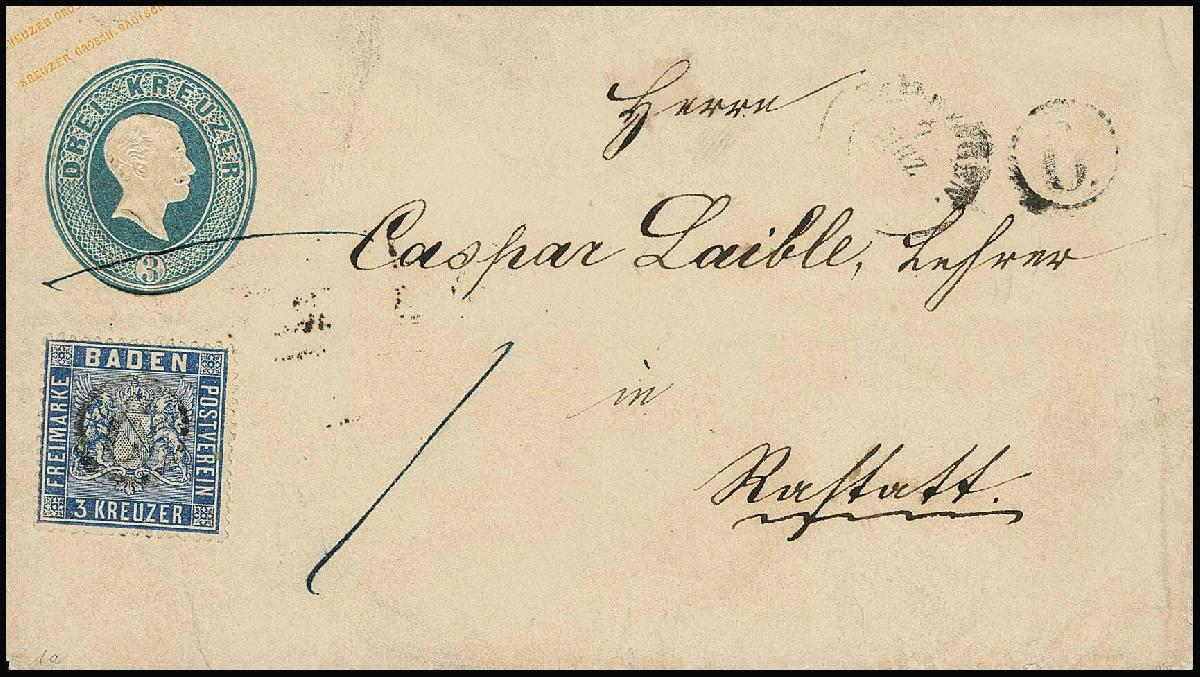 KREUZER GROS
KREUZER GROSSH. BADISCH
DREI KREUZER
3
Herrn
C.
Caspar Laible, Lehrer
in
Rastatt.
BADEN
FREIMARKE
POSTVEREIN
3 KREUZER
1a